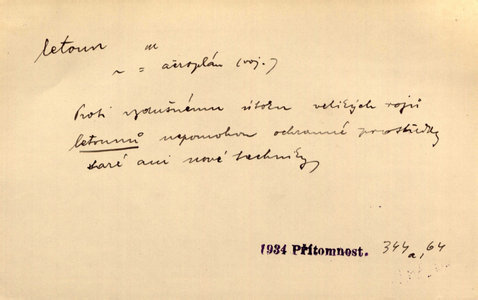 letoun m
~ = aëroplán (voj.)
Proti vzdušnému útoku velikých rojů
letounů nepomohou ochranné prostředky
staré ani nové techniky
1934 Přítomnost. 344a, 64